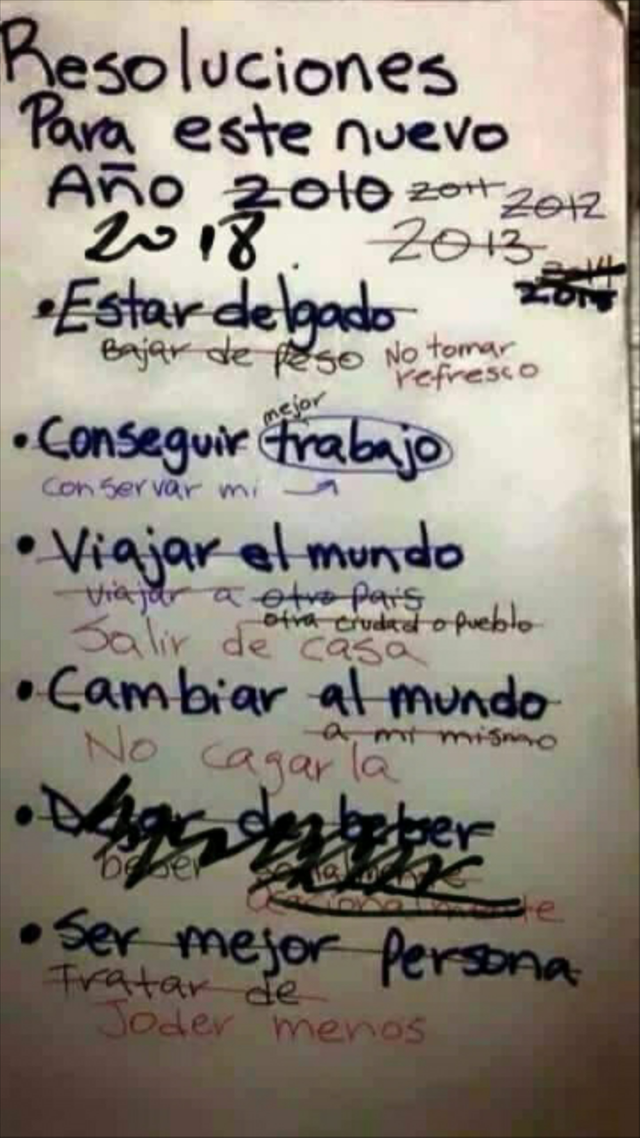 Resoluciones
Para este nuevo
Año 2010 2011 2012
2018 2013
2014
2015
• Estar delgado
Bajar de peso No tomar
refresco
mejor
• Conseguir trabajo
conservar mi
• Viajar el mundo
viajar a otro país
otra ciudad o pueblo
Salir de casa
• Cambiar al mundo
a mi mismo
No cagarla
• Dejar de beber
beber
ocacionalmente
• Ser mejor persona
Tratar de
Joder menos